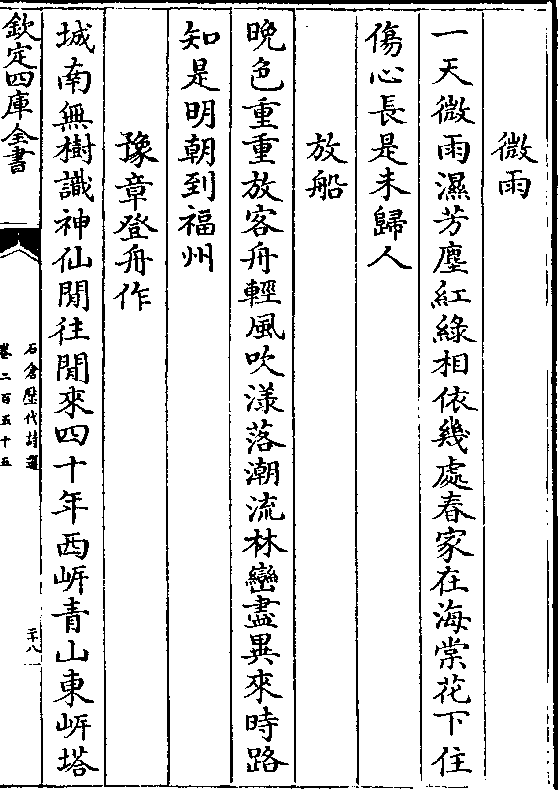 微雨
一天微雨濕芳塵紅綠相依幾處春家在海棠花下住
傷心長是未歸人
放船
晚色重重放客舟輕風吹漾落潮流林巒盡異來時路
知是明朝到福州
豫章登舟作
城南無樹識神仙閒往閒來四十年西㟁青山東㟁塔
欽定四庫全書
石倉歴代詩選
卷二百五十五
三十八